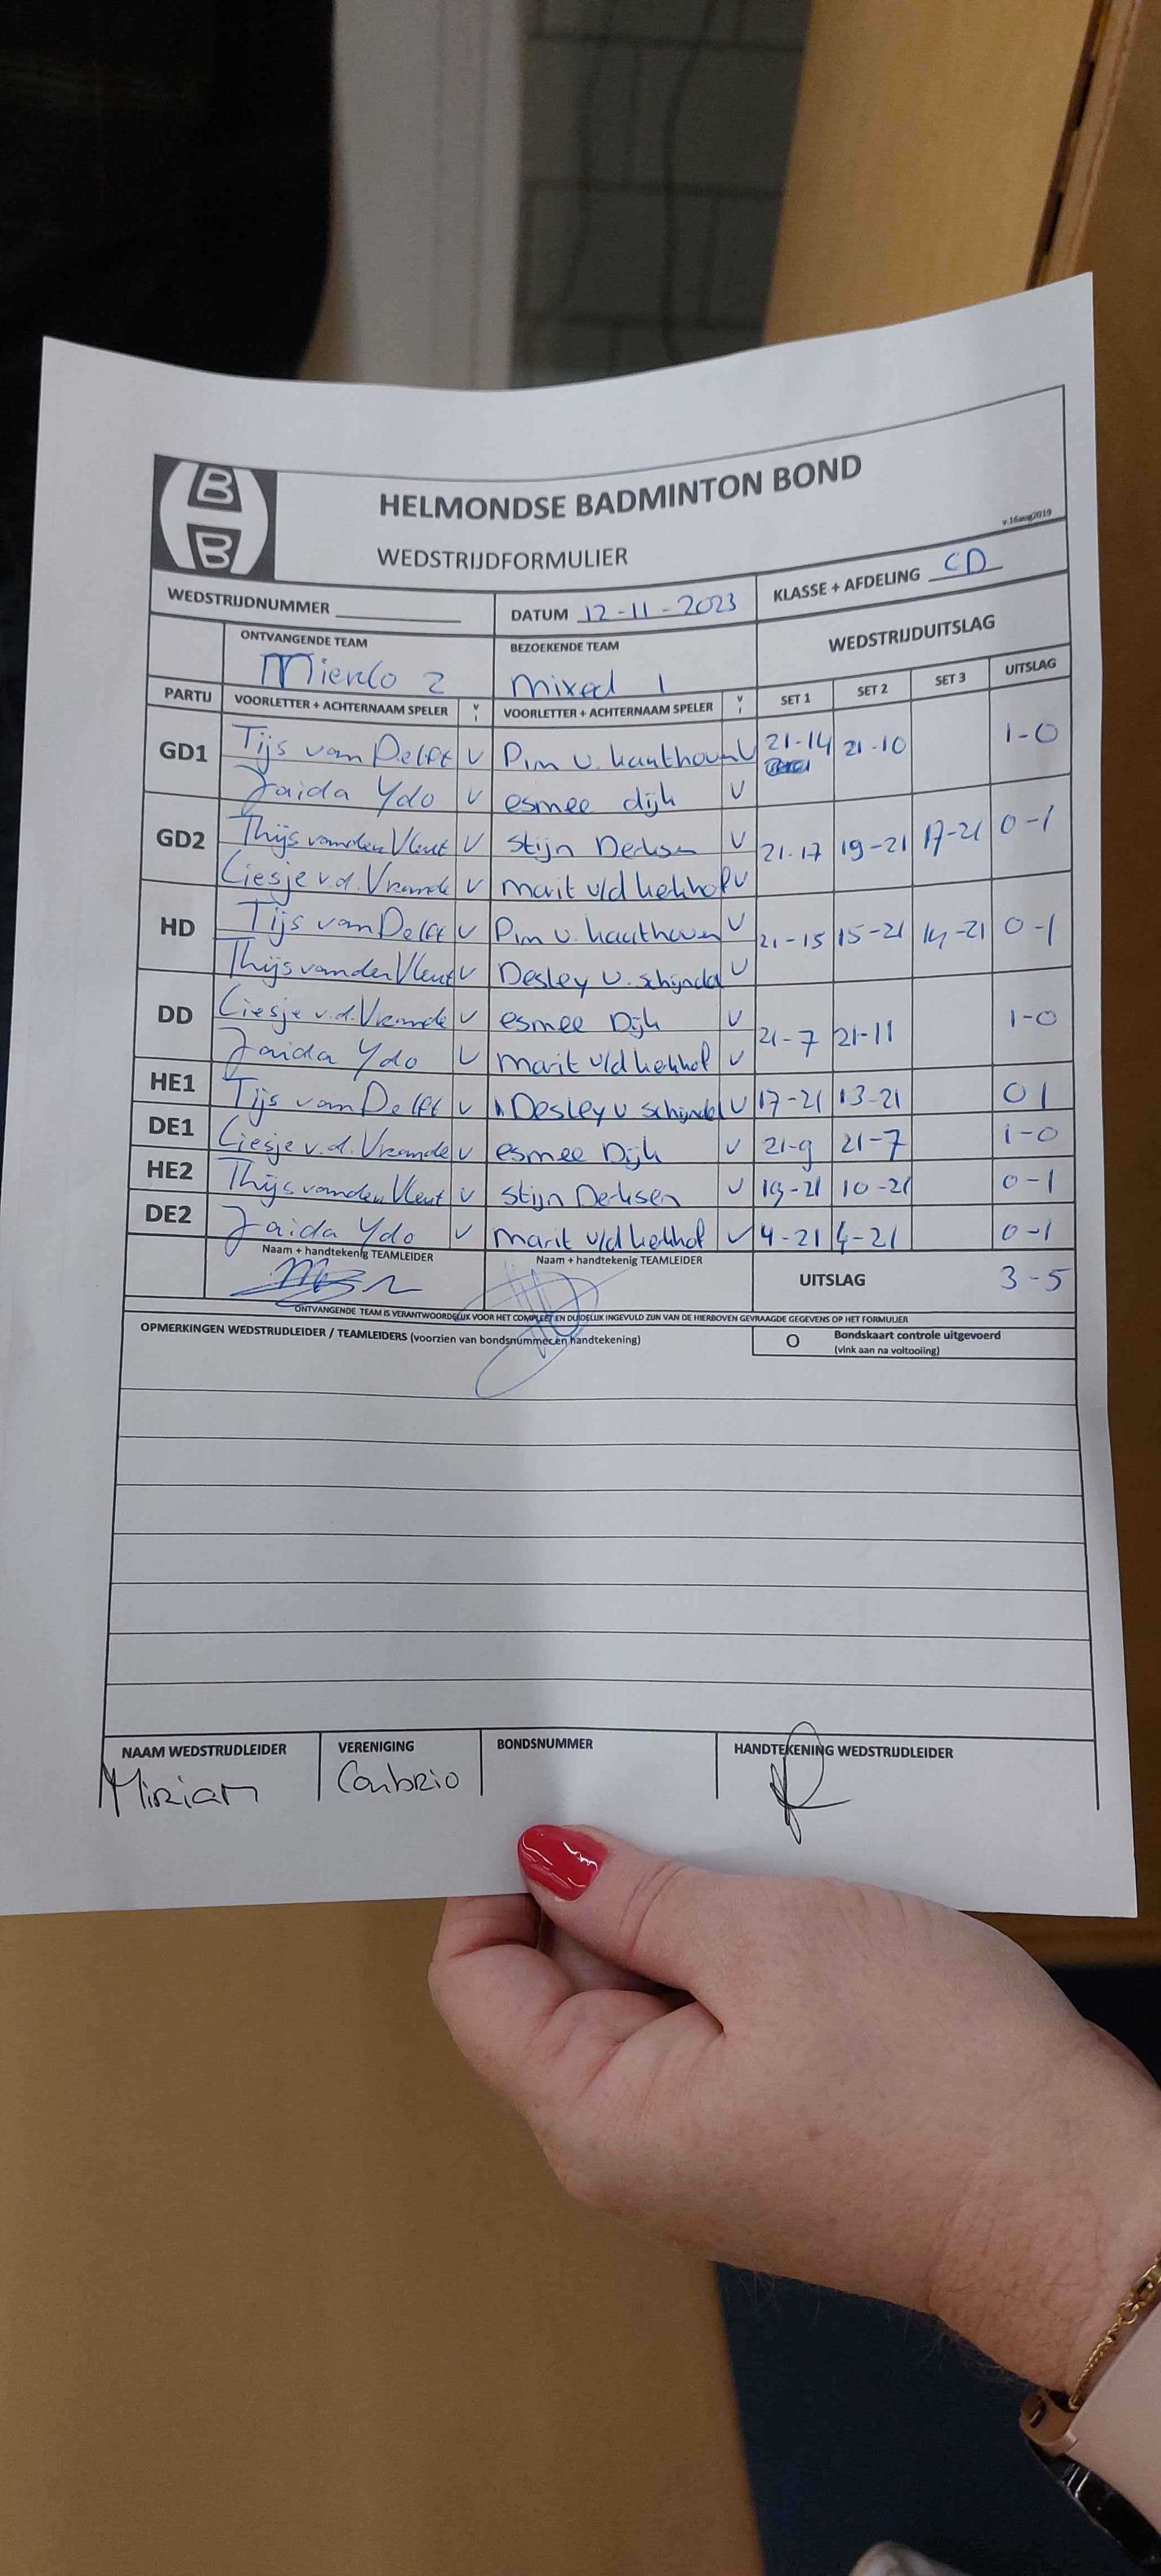 B
B
HELMONDSE BADMINTON BOND
WEDSTRIJDFORMULIER
v.16aug2019
WEDSTRIJDNUMMER
DATUM 12-11-2023
KLASSE + AFDELING CD
ONTVANGENDE TEAM
BEZOEKENDE TEAM
WEDSTRIJDUITSLAG
Mierlo 2
mixed 1
PARTIJ VOORLETTER + ACHTERNAAM SPELER V I VOORLETTER + ACHTERNAAM SPELER V I SET 1 SET 2 SET 3 UITSLAG
GD1 Tijs van Delft V Pim v. V 21-14 21-10 1-0
Jaida Ydo V esmee dijk V
GD2 Thijs van den Vleut V Stijn Derksen V 21-17 19-21 17-21 0-1
Liesje v.d. V marit v/d kerkhof V
HD Tijs van Delft V Pim v. V 21-15 15-21 14-21 0-1
Thijs van der Vleut V Desley v. schijndel V
DD Liesje v.d. V esmee Dijk V 21-7 21-11 1-0
Jaida Ydo V marit v/d kerkhof V
HE1 Tijs van Delft V Desley v schijndel V 17-21 13-21 0 1
DE1 Liesje v.d. V esmee Dijk V 21-9 21-7 1-0
HE2 Thijs van den Vleut V Stijn Derksen V 19-21 10-21 0-1
DE2 Jaida Ydo V marit v/d kerkhof V 4-21 4-21 0-1
Naam + handtekenig TEAMLEIDER
Naam + handtekenig TEAMLEIDER
UITSLAG 3-5
ONTVANGENDE TEAM IS VERANTWOORDELIJK VOOR HET COMPLEET EN DUIDELIJK INGEVULD ZIJN VAN DE HIERBOVEN GEVRAAGDE GEGEVENS OP HET FORMULIER
OPMERKINGEN WEDSTRIJDLEIDER / TEAMLEIDERS (voorzien van bondsnummer en handtekening)
O Bondskaart controle uitgevoerd
(vink aan na voltooiing)
NAAM WEDSTRIJDLEIDER VERENIGING BONDSNUMMER HANDTEKENING WEDSTRIJDLEIDER
Miriam Conbrio